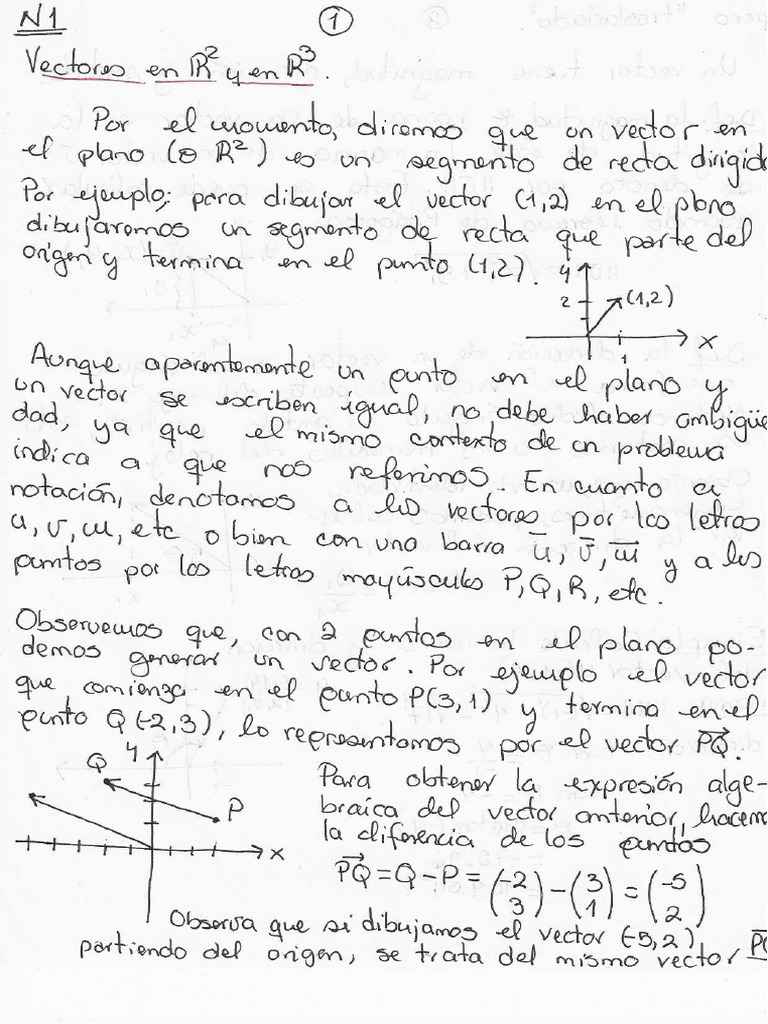 N1
①
Vectores en R² y en R³.
Por el momento, diremos que un vector en
el plano (o R²) es un segmento de recta dirigid
Por ejemplo; para dibujar el vector (1,2) en el plano
dibujaremos un segmento de recta que parte del
origen y termina en el punto (1,2).
y
2
(1,2)
x
1
Aunque aparentemente un punto en el plano y
un vector se escriben igual, no debe haber ambigüe
dad, ya que el mismo contexto de un problema
indica a que nos referimos. En cuanto a
notación, denotamos a los vectores por las letras
u, v, w, etc o bien con una barra u̅, v̅, w̅ y a los
puntos por las letras mayúsculas P, Q, R, etc.
Observemos que, con 2 puntos en el plano po-
demos generar un vector. Por ejemplo el vector
que comienza en el punto P(3,1) y termina en el
punto Q(-2,3), lo representamos por el vector P⃗Q.
y
Q
P
x
Para obtener la expresión alge-
braica del vector anterior, hacemo
la diferencia de los puntos
P⃗Q = Q - P = (-2 3) - (3 1) = (-5 2)
Observa que si dibujamos el vector (-5,2)
partiendo del origen, se trata del mismo vector